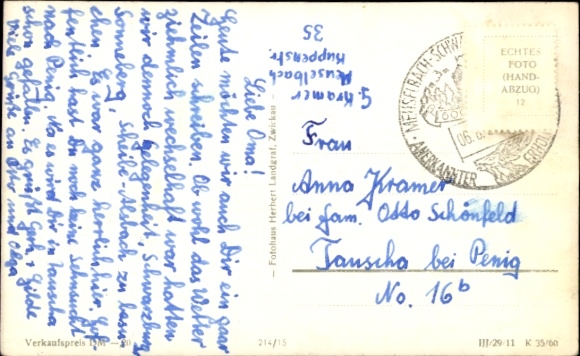 Liebe Oma!
Heute möchten wir auch Dir ein paar
Zeilen schreiben. Ob wohl das Wetter
ziehmlich wechselhaft war hatten
wir dennoch Gelegenheit, Schwarzburg
Sonneberg, Scheibe-Alsbach zu besu-
chen. Es war ganz herrlich hier. Hof-
fentlich hast Du noch keine Sehnsucht
nach Penig. Na es wird Dir in Tauscha
schon gefallen. Es grüßt Gerh. + Gilde
Viele Grüße an Otto und Olga
G. Kramer
Meuselbach
Kuppenstr.
35
— Fotohaus Herbert Landgraf, Zwickau —
MEUSELBACH-SCHW
06.
ANERKANNTER ERHOL
ECHTES
FOTO
(HAND-
ABZUG)
12
Frau
Anna Kramer
bei Fam. Otto Schönfeld
Tauscha bei Penig
No. 16b
Verkaufspreis DM —.20
214/15
III/29/11 K 35/60